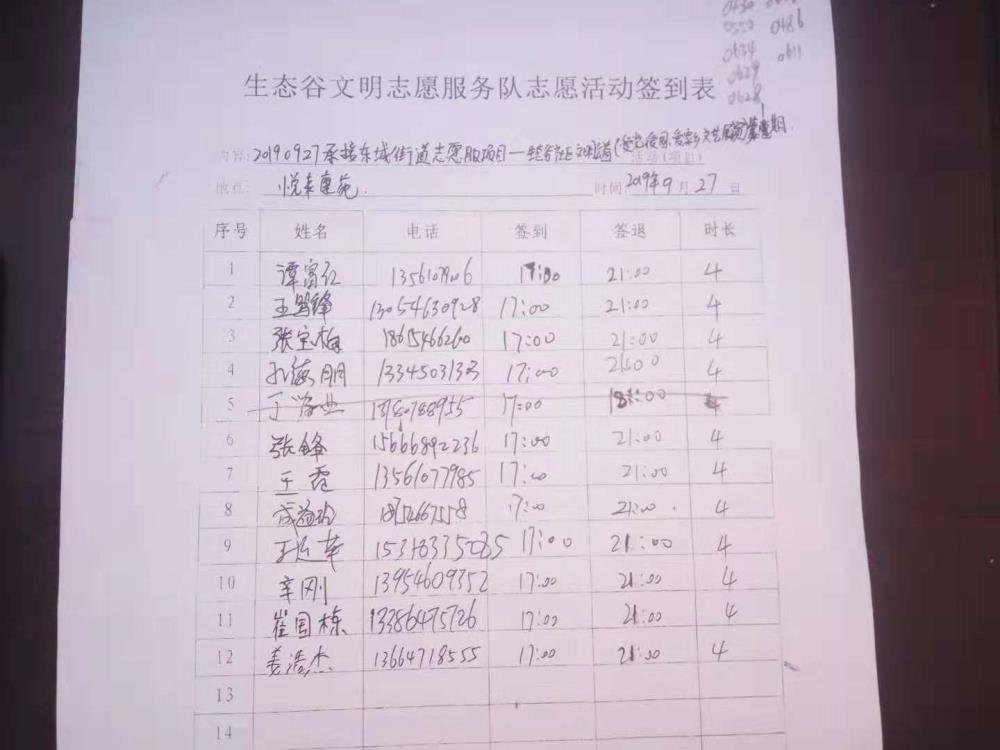 0430
0550 0486
0634 0611
0629
0628
生态谷文明志愿服务队志愿活动签到表
内容: 20190927承接东城街道志愿服项目一 活动(项目)
地址: 悦来 苑. 时间: 2019年9月27日
序号 姓名 电话 签到 签退 时长
1 谭富红 1356107906 17:00 21:00 4
2 王 锋 13054630928 17:00 21:00 4
3 张宝梅 1865466260 17:00 21:00 4
4 孔海朋 1334503133 17:00 21:00 4
5 丁 业 17:00 18:00 4
6 张锋 15666892236 17:00 21:00 4
7 王霞 13561077985 17:00 21:00 4
8 17:00 21:00 4
9 15318335085 17:00 21:00 4
10 辛刚 13954609352 17:00 21:00 4
11 崔国栋 13386475726 17:00 21:00 4
12 姜浩杰 13664718555 17:00 21:00 4
13
14